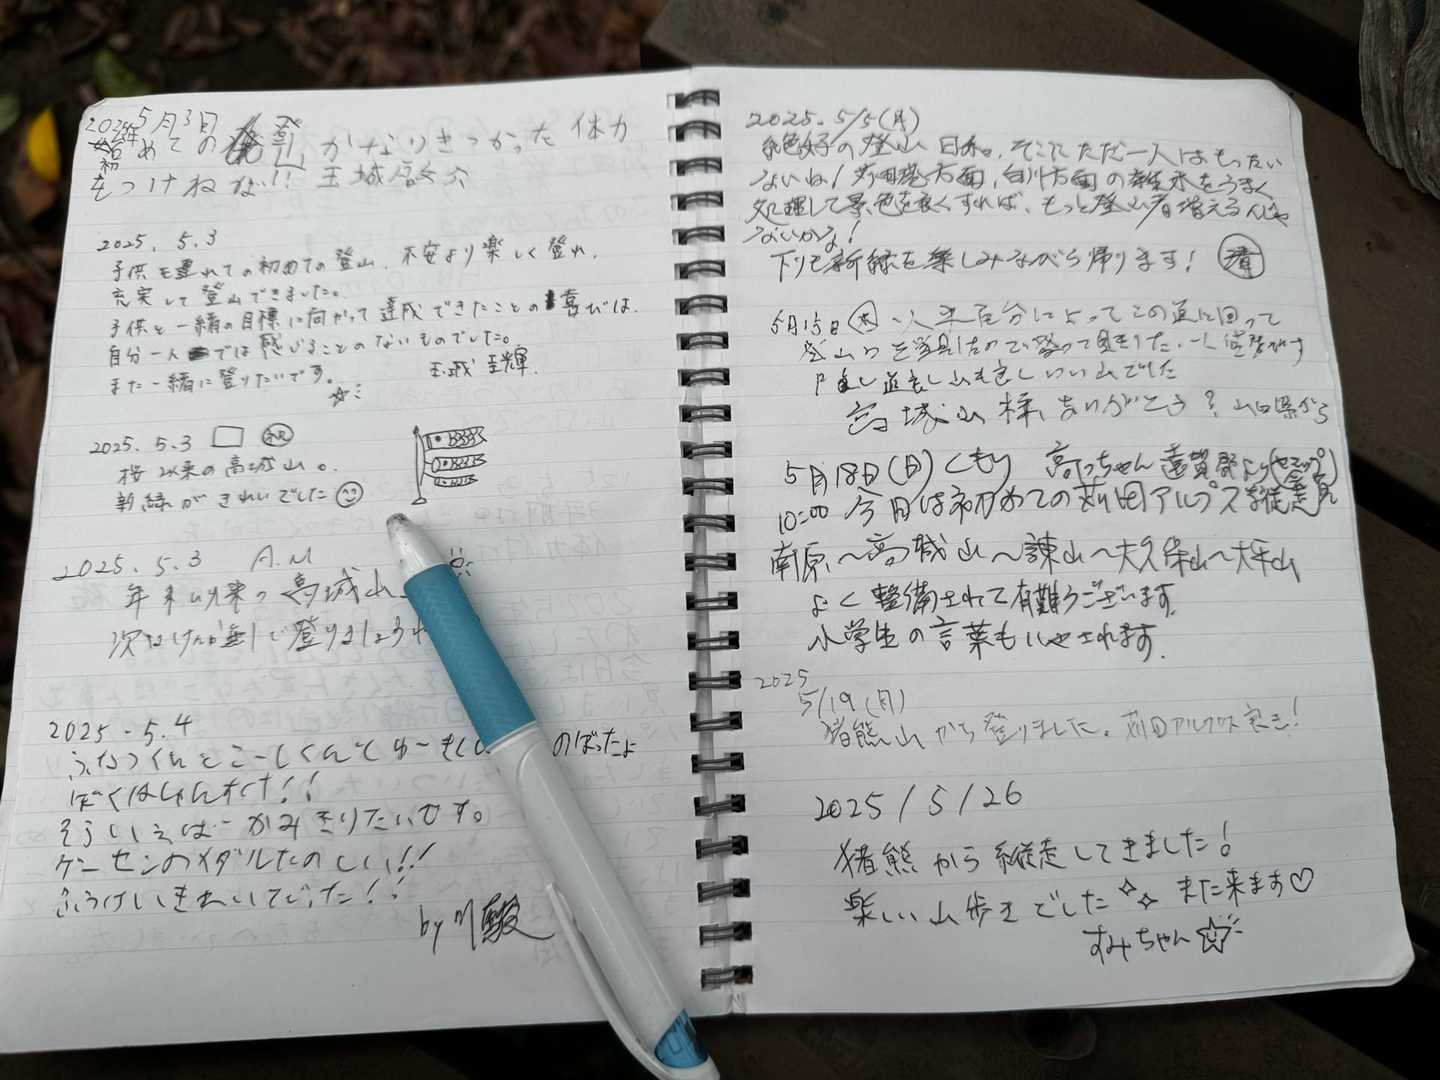 2025年 5月3日
初めての 登山 かなりきつかった 体力
をつけねば!! 玉城
2025. 5.3
子供を連れての初めての登山、不安より楽しく登れ、
充実して登山できました。
子供と一緒の目標に向かって達成できたことの喜びは、
自分一人では感じることのないものでした。
また一緒に登りたいです。 玉城 輝
2025. 5.3
桜以来の高城山。
新緑がきれいでした
2025. 5.3 A.M
年末以来の高城山
次は 無しで登りましょうね
2025. 5.4
ふなつくんとこーしくんてゆーき のぼったよ
ぼくはしゅんすけ!!
そういえばーかみきりたいです。
ゲーセンのメダルたのしい!!
ふうけいきれいでした!!
by 川駿
2025. 5/5(月)
絶好の登山日和。そこにただ一人はもったい
ないね! 苅田港方面、白川方面の雑木をうまく
処理して景色を良くすれば、もっと登山者増えるんじゃ
ないかな!
下りも新緑を楽しみながら帰ります! 清
5月15日(木) 一人 によってこの道に回って
登山 て登って来ました。一人
し 道も良し山も良しいい山でした
高城山様、ありがとう? 山口県から
5月18日(日) くもり 高っちゃん 遠賀郡より
10:00 今日は初めての苅田アルプスを縦走
南原〜高城山〜諫山〜大久保山〜大平山
よく整備されて有難うございます。
小学生の言葉もいやされます。
2025
5/19(月)
猪熊山から登りました。苅田アルプス良き!
2025/5/26
猪熊から縦走してきました!
楽しい山歩きでした また来ます♡
すみちゃん